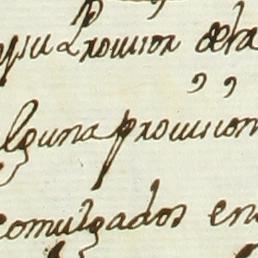 su Provision dela
alguna provision
comulgados en